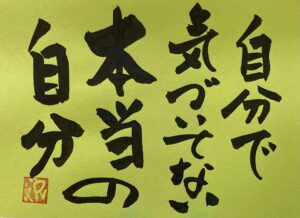 自分で
気づいてない
本当の
自分